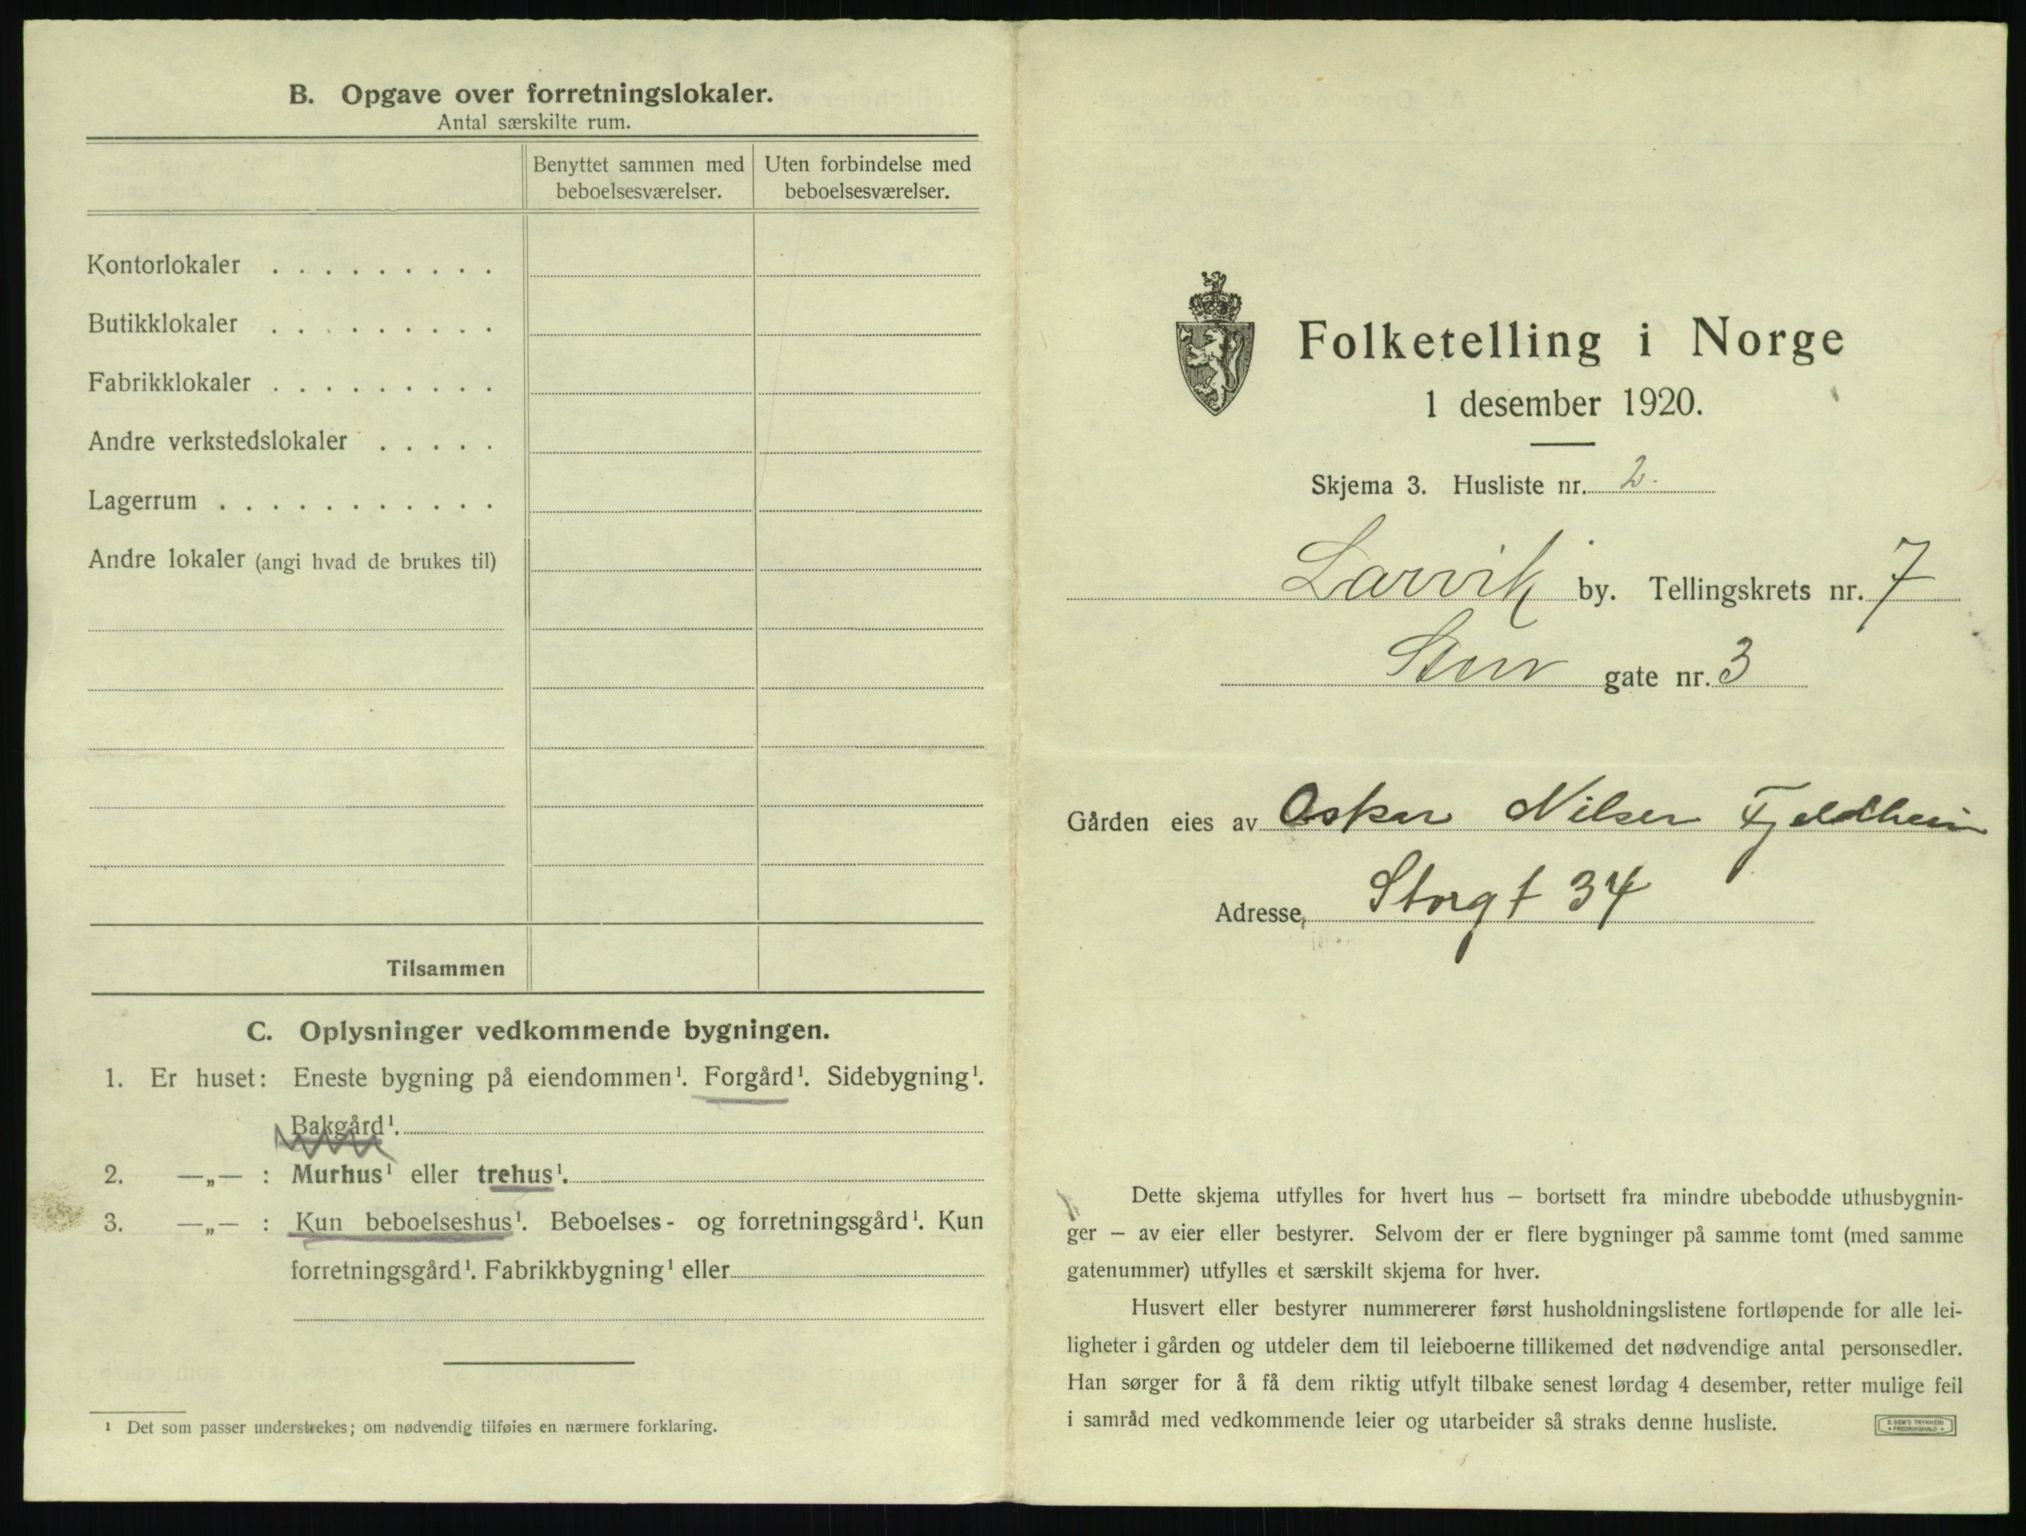 B. Opgave over forretningslokaler.
Antal særskilte rum.
Benyttet sammen med beboelsesværelser.
Uten forbindelse med beboelsesværelser.
Kontorlokaler . . . . . . . . .
Butikklokaler . . . . . . . . .
Fabrikklokaler . . . . . . . . .
Andre verkstedslokaler . . . . .
Lagerrum . . . . . . . . . . .
Andre lokaler (angi hvad de brukes til)
Tilsammen
C. Oplysninger vedkommende bygningen.
1. Er huset: Eneste bygning på eiendommen¹. Forgård¹. Sidebygning¹.
Bakgård¹.
2. —„— : Murhus¹ eller trehus¹.
3. —„— : Kun beboelseshus¹. Beboelses- og forretningsgård¹. Kun
forretningsgård¹. Fabrikkbygning¹ eller
¹ Det som passer understrekes; om nødvendig tilføies en nærmere forklaring.
Folketelling i Norge
1 desember 1920.
Skjema 3. Husliste nr. 2.
Larvik by. Tellingskrets nr. 7
Stor gate nr. 3
Gården eies av Oskar Nilsen Fjeldheim
Adresse, Storgt 34
Dette skjema utfylles for hvert hus – bortsett fra mindre ubebodde uthusbygnin-
ger – av eier eller bestyrer. Selvom der er flere bygninger på samme tomt (med samme
gatenummer) utfylles et særskilt skjema for hver.
Husvert eller bestyrer nummererer først husholdningslistene fortløpende for alle lei-
ligheter i gården og utdeler dem til leieboerne tillikemed det nødvendige antal personsedler.
Han sørger for å få dem riktig utfylt tilbake senest lørdag 4 desember, retter mulige feil
i samråd med vedkommende leier og utarbeider så straks denne husliste.
E. SEM'S TRYKKERI
FREDRIKSHALD